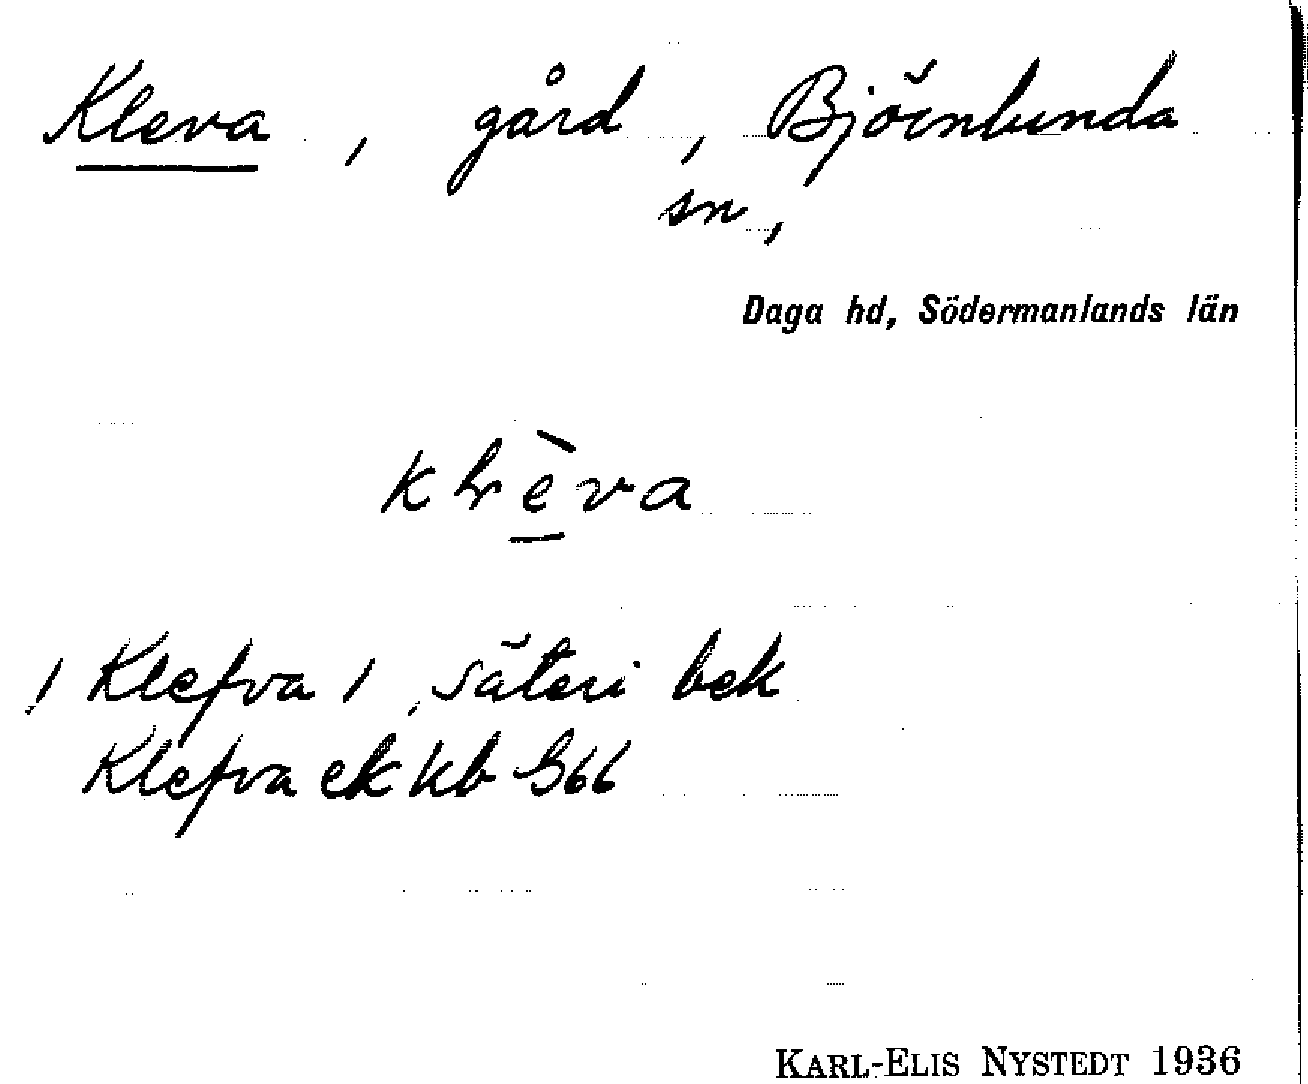 Kleva, gård, Björnlunda
sn,
Daga hd, Södermanlands län
/ Klefva /, säteri bek
Klefva ek kb G66
KARL-ELIS NYSTEDT 1936